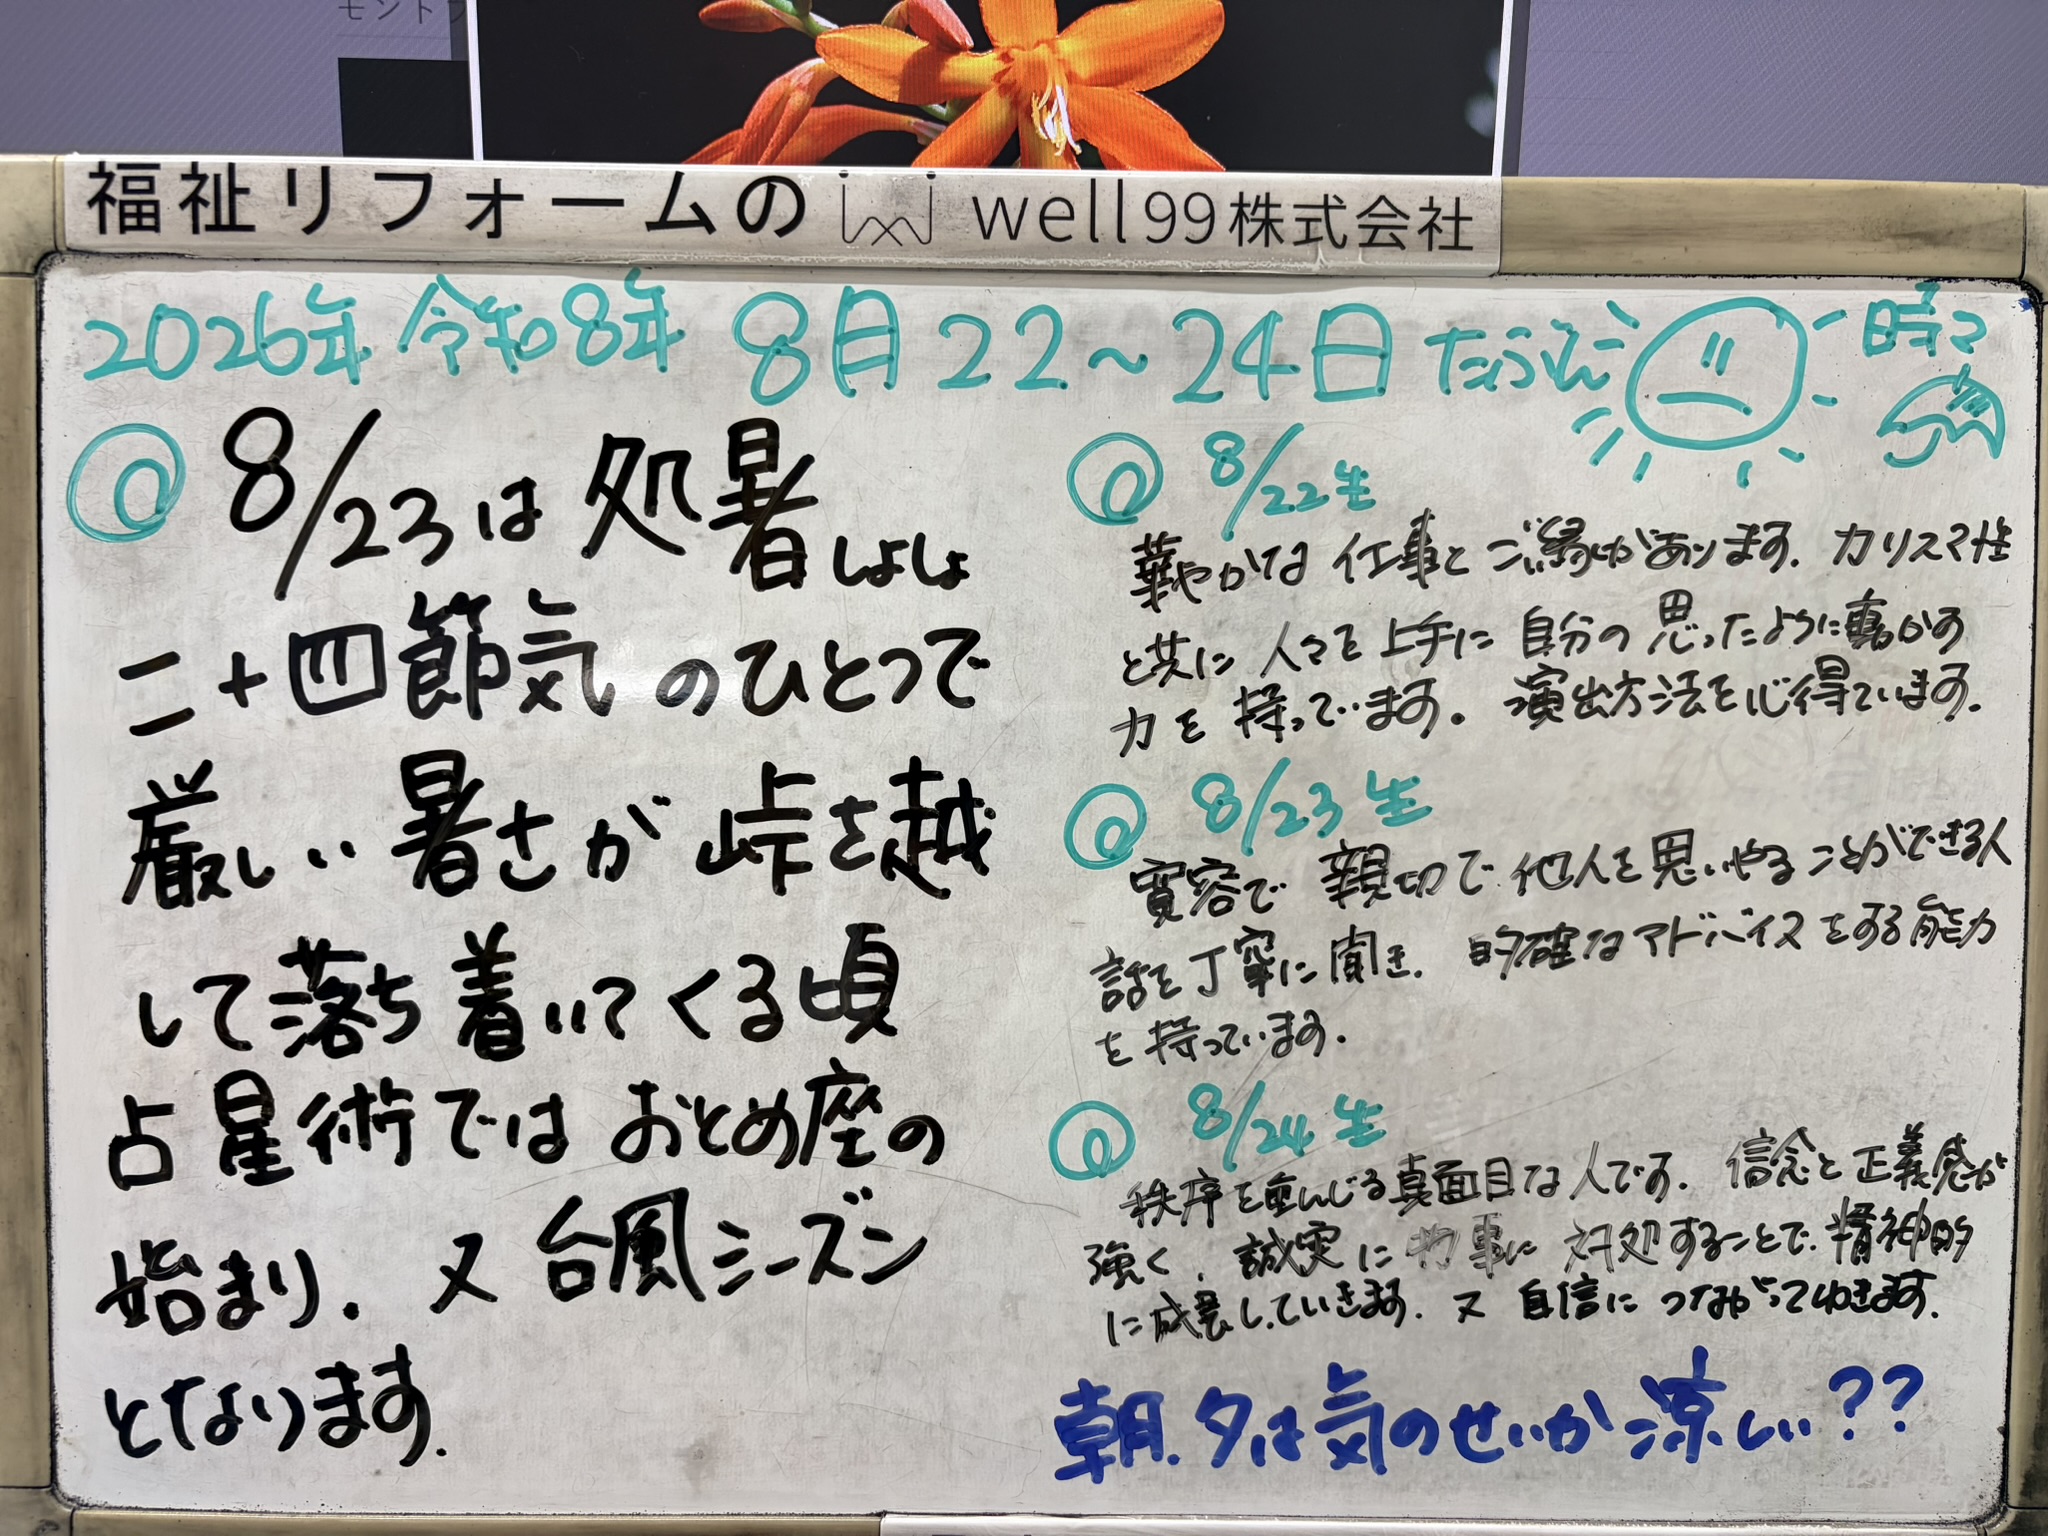 モントブ
福祉リフォームの well99株式会社
2026年 令和8年 8月22～24日 たぶん 時々
@ 8/23は処暑しょしょ
二十四節気のひとつで
厳しい暑さが峠を越
して落ち着いてくる頃
占星術ではおとめ座の
始まり. 又台風シーズン
となります.
@ 8/22生
華やかな仕事とご縁があります. カリスマ性
と共に人々を上手に自分の思ったように動かす
力を持っています。演出方法を心得ています.
@ 8/23生
寛容で親切で他人を思いやることができる人
話を丁寧に聞き. 的確なアドバイスをする能力
を持っています.
@ 8/24生
秩序を重んじる真面目な人です. 信念と正義感が
強く, 誠実に物事に対処することで. 精神的
に成長していきます. 又自信につながってゆきます.
朝.夕は気のせいか涼しい??